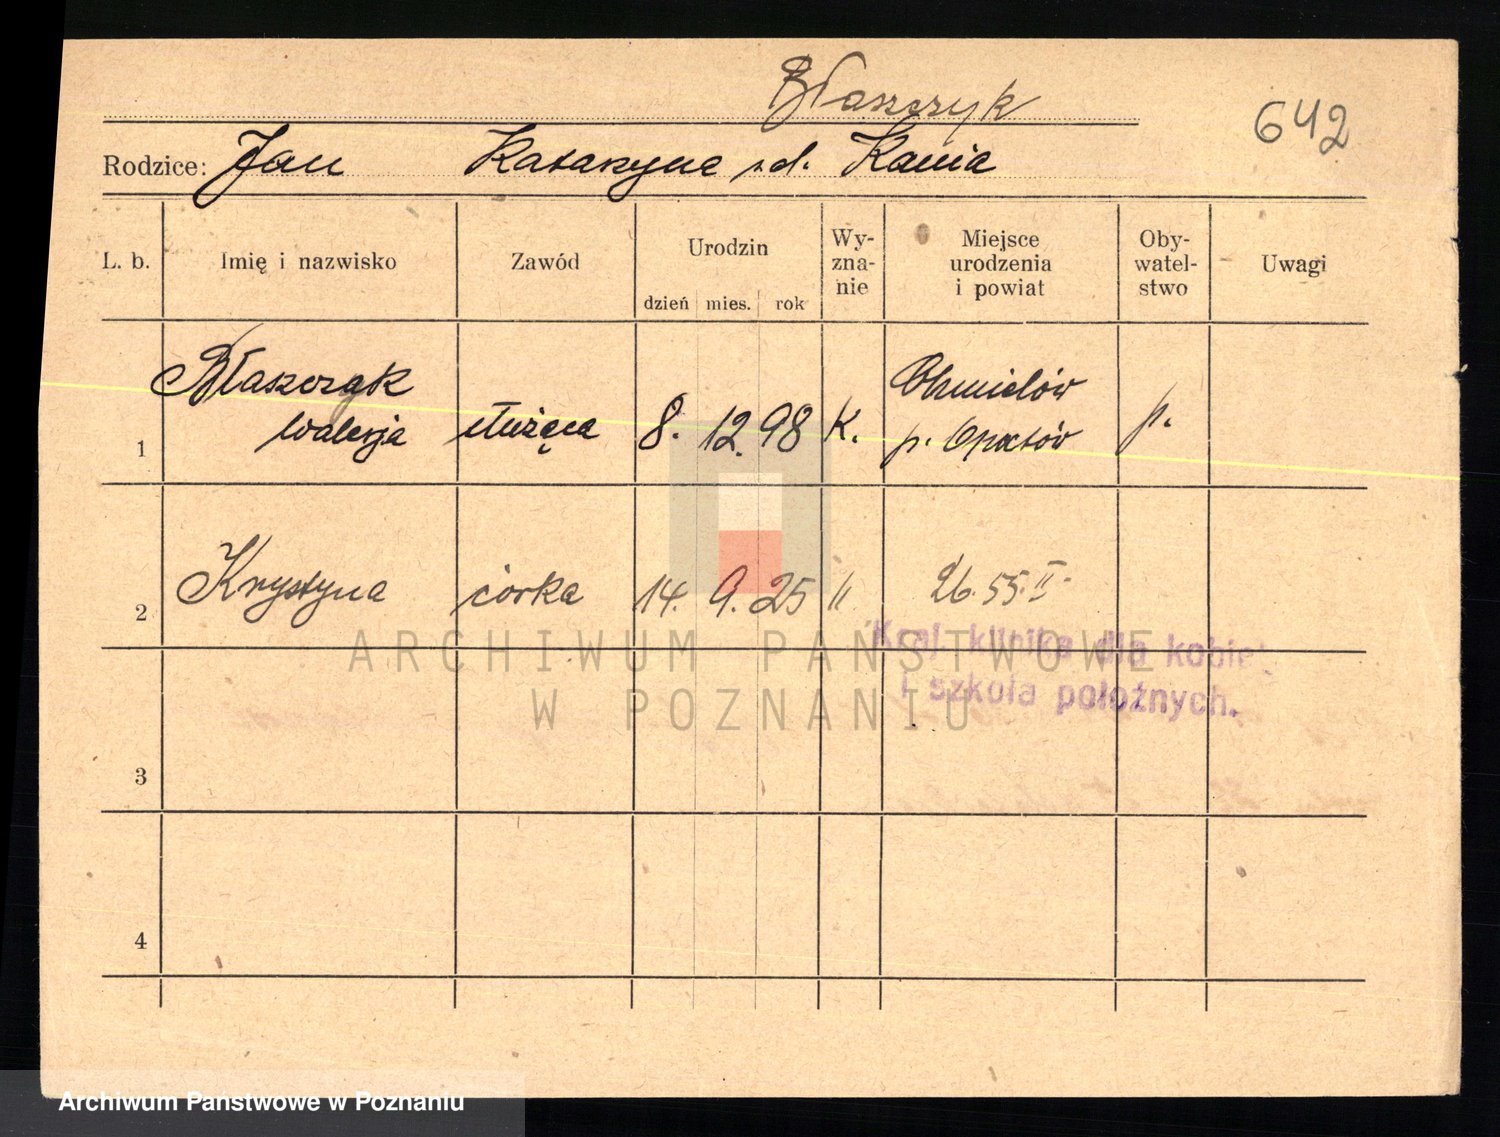 Błaszczyk
642
Rodzice: Jan Katarzyna z.d. Kania
L. b. Imię i nazwisko Zawód Urodzin dzień mies. rok Wy-zna-nie Miejsce urodzenia i powiat Oby-watel-stwo Uwagi
Błaszczyk
Walerja
1 służąca 8. 12. 98 K. Chmielów
p. Opatów p.
2 Krystyna córka 14. 9. 25 " 26.55.II
Kraj. klinika dla kobiet
i szkoła położnych.
3
4
ARCHIWUM PAŃSTWOWE
W POZNANIU
Archiwum Państwowe w Poznaniu